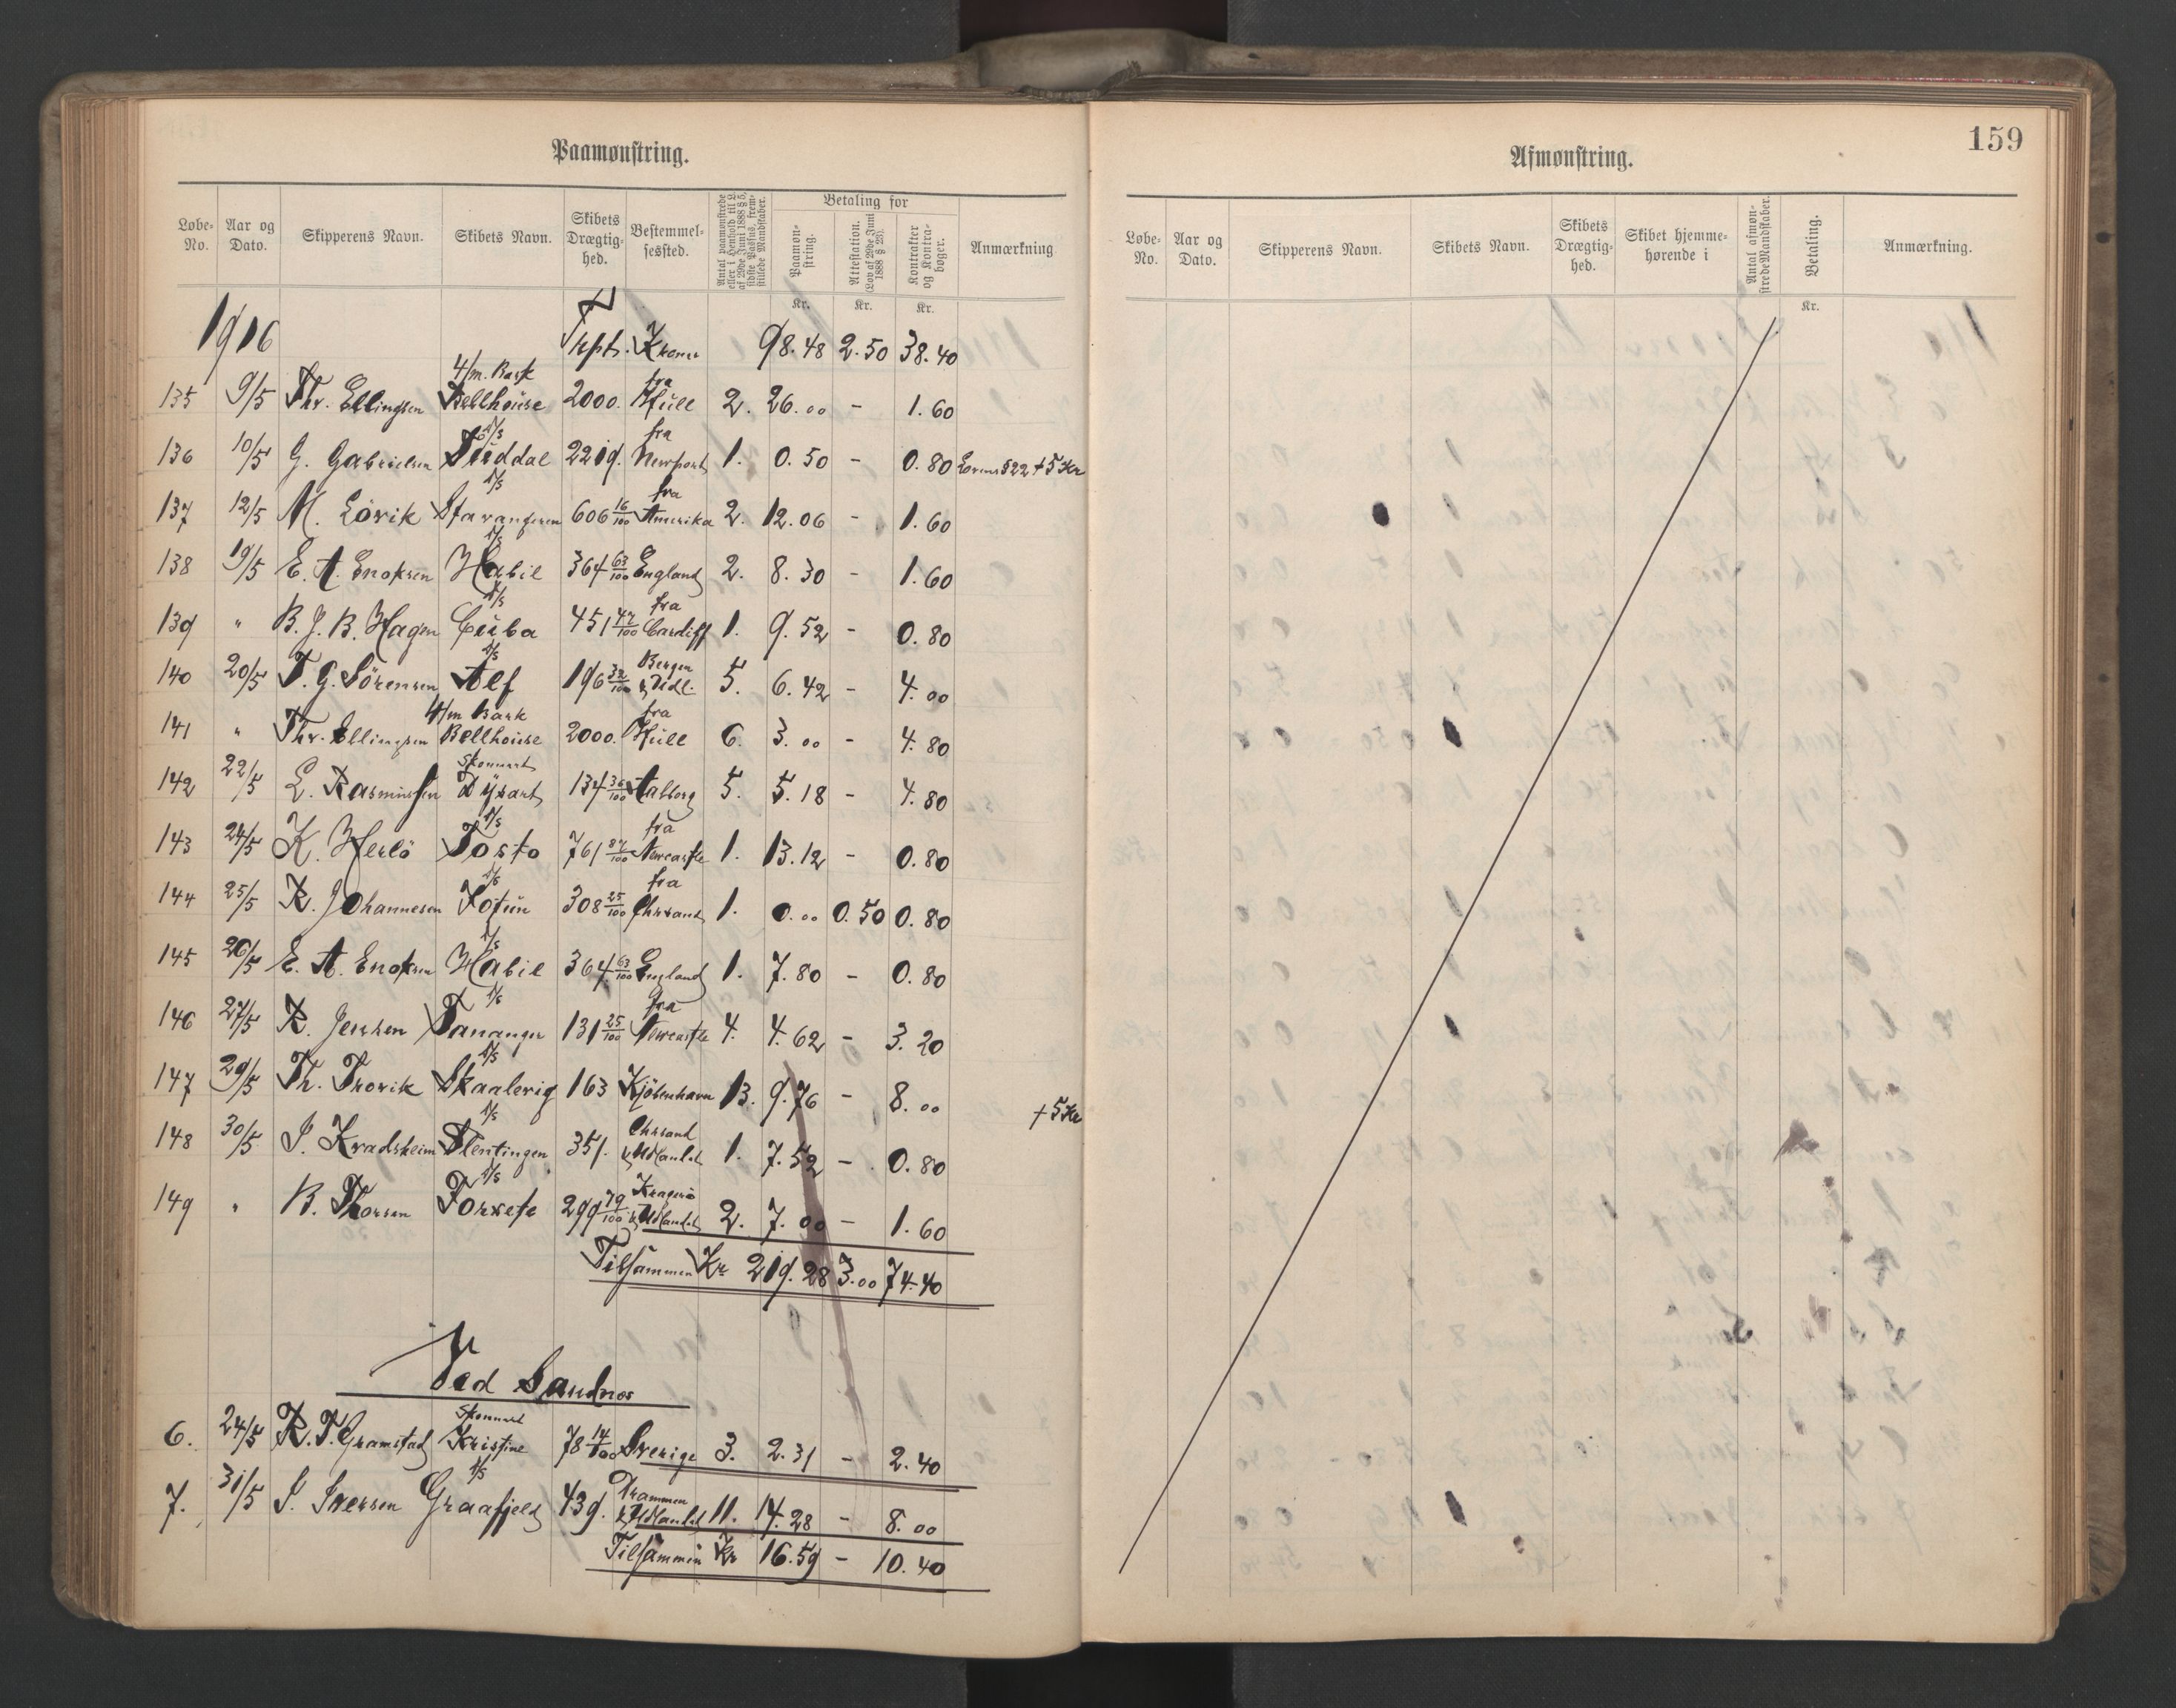 Paamønstring.
Løbe-No. Aar og Dato. Skipperens Navn. Skibets Navn. Skibets Drægtig-hed. Bestemmel-sessted. Antal paamønstrede eller i Henhold til L. af 29de Juni 1888 § 5, sidste Passus, frem-stillede Mandskaber. Betaling for Paamøn-string. Attestation. (Lov af 29de Juni 1888 § 23). Kontrakter og Kontra-bøger. Anmærkning
Kr. Kr. Kr.
1916 Trpt. Kroner 98.48 2.50 38.40
135 9/5 Thr. Ellingsen 4/m. Bark Bellhouse 2000. fra Hull 2. 26.00 - 1.60
136 10/5 G. Gabrielsen D/S Suddal 2219. fra Newport 1. 0.50 - 0.80 Lovens § 22 + 5 Kr
137 12/5 M. Lövik D/S Stavangeren 606 16/100 fra Amerika 2. 12.06 - 1.60
138 19/5 E. A. Enoksen D/S Habil 364 63/100 England 2. 8.30 - 1.60
139 " B. J. B. Hagen D/S Cuba 451 47/100 fra Cardiff 1. 9.52 - 0.80
140 20/5 T. G. Sörensen D/S Alf 196 32/100 Bergen & Udl. 5. 6.42 - 4.00
141 " Thr. Ellingsen 4/m Bark Bellhouse 2000. fra Hull 6. 3.00 - 4.80
142 22/5 L. Rasmussen Skonnert Dysart 134 36/100 Aalborg 5. 5.18 - 4.80
143 24/5 K. Herlö D/S Tosto 761 87/100 fra Newcastle 1. 13.12 - 0.80
144 25/5 R. Johannesen D/S Jotun 308 25/100 fra Chrsand 1. 0.00 0.50 0.80
145 26/5 E. A. Enoksen D/S Habil 364 63/100 England 1. 7.80 - 0.80
146 27/5 R. Jensen D/S Tananger 131 25/100 fra Newcastle 4. 4.62 - 3.20
147 29/5 Th. Trovik D/S Skaalevig 163 Kjöbenhavn 13. 9.76 - 8.00 + 5 Kr
148 30/5 J. Kvadsheim D/S Slentingen 351. Chrsand & Udlandet 1. 7.52 - 0.80
149 " B. Thorsen D/S Forsete 299 79/100 Kragerö & Udlandet 2. 7.00 - 1.60
Tilsammen Kr 219.28 3.00 74.40
Ved Sandnes
6. 24/5 R. T. Gramstad Skonnert Kristine 78 14/100 Sverige 3. 2.31 - 2.40
7. 31/5 S. Iversen D/S Graafjeld 439. Drammen & Udlandet 11. 14.28 - 8.00
Tilsammen Kr 16.59 - 10.40
159
Afmønstring.
Løbe-No. Aar og Dato. Skipperens Navn. Skibets Navn. Skibets Drægtig-hed. Skibet hjemme-hørende i Antal afmøn-strede Mandskaber. Betaling. Anmærkning.
Kr.